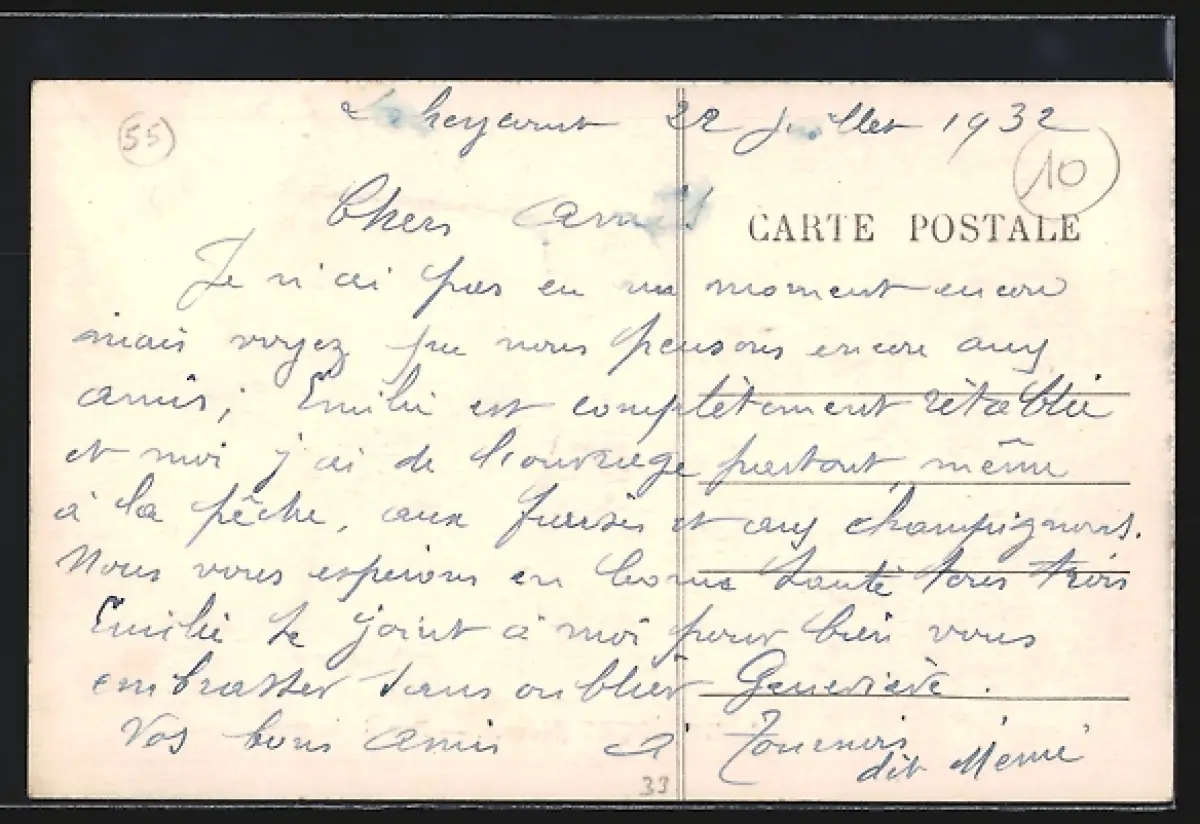 Laheycourt 22 juillet 1932
55
10
Chers Amis
CARTE POSTALE
Je n'ai pas eu un moment encore
mais voyez que nous pensons encore aux
amis; Emilie est complètement rétablie
et moi j'ai de l'ouvrage partout, même
à la pêche, aux fraises et aux champignons.
Nous vous espérons en bonne santé tous trois
Emilie se joint à moi pour bien vous
embrasser sans oublier Geneviève.
Vos bons amis
dit Mémé
33